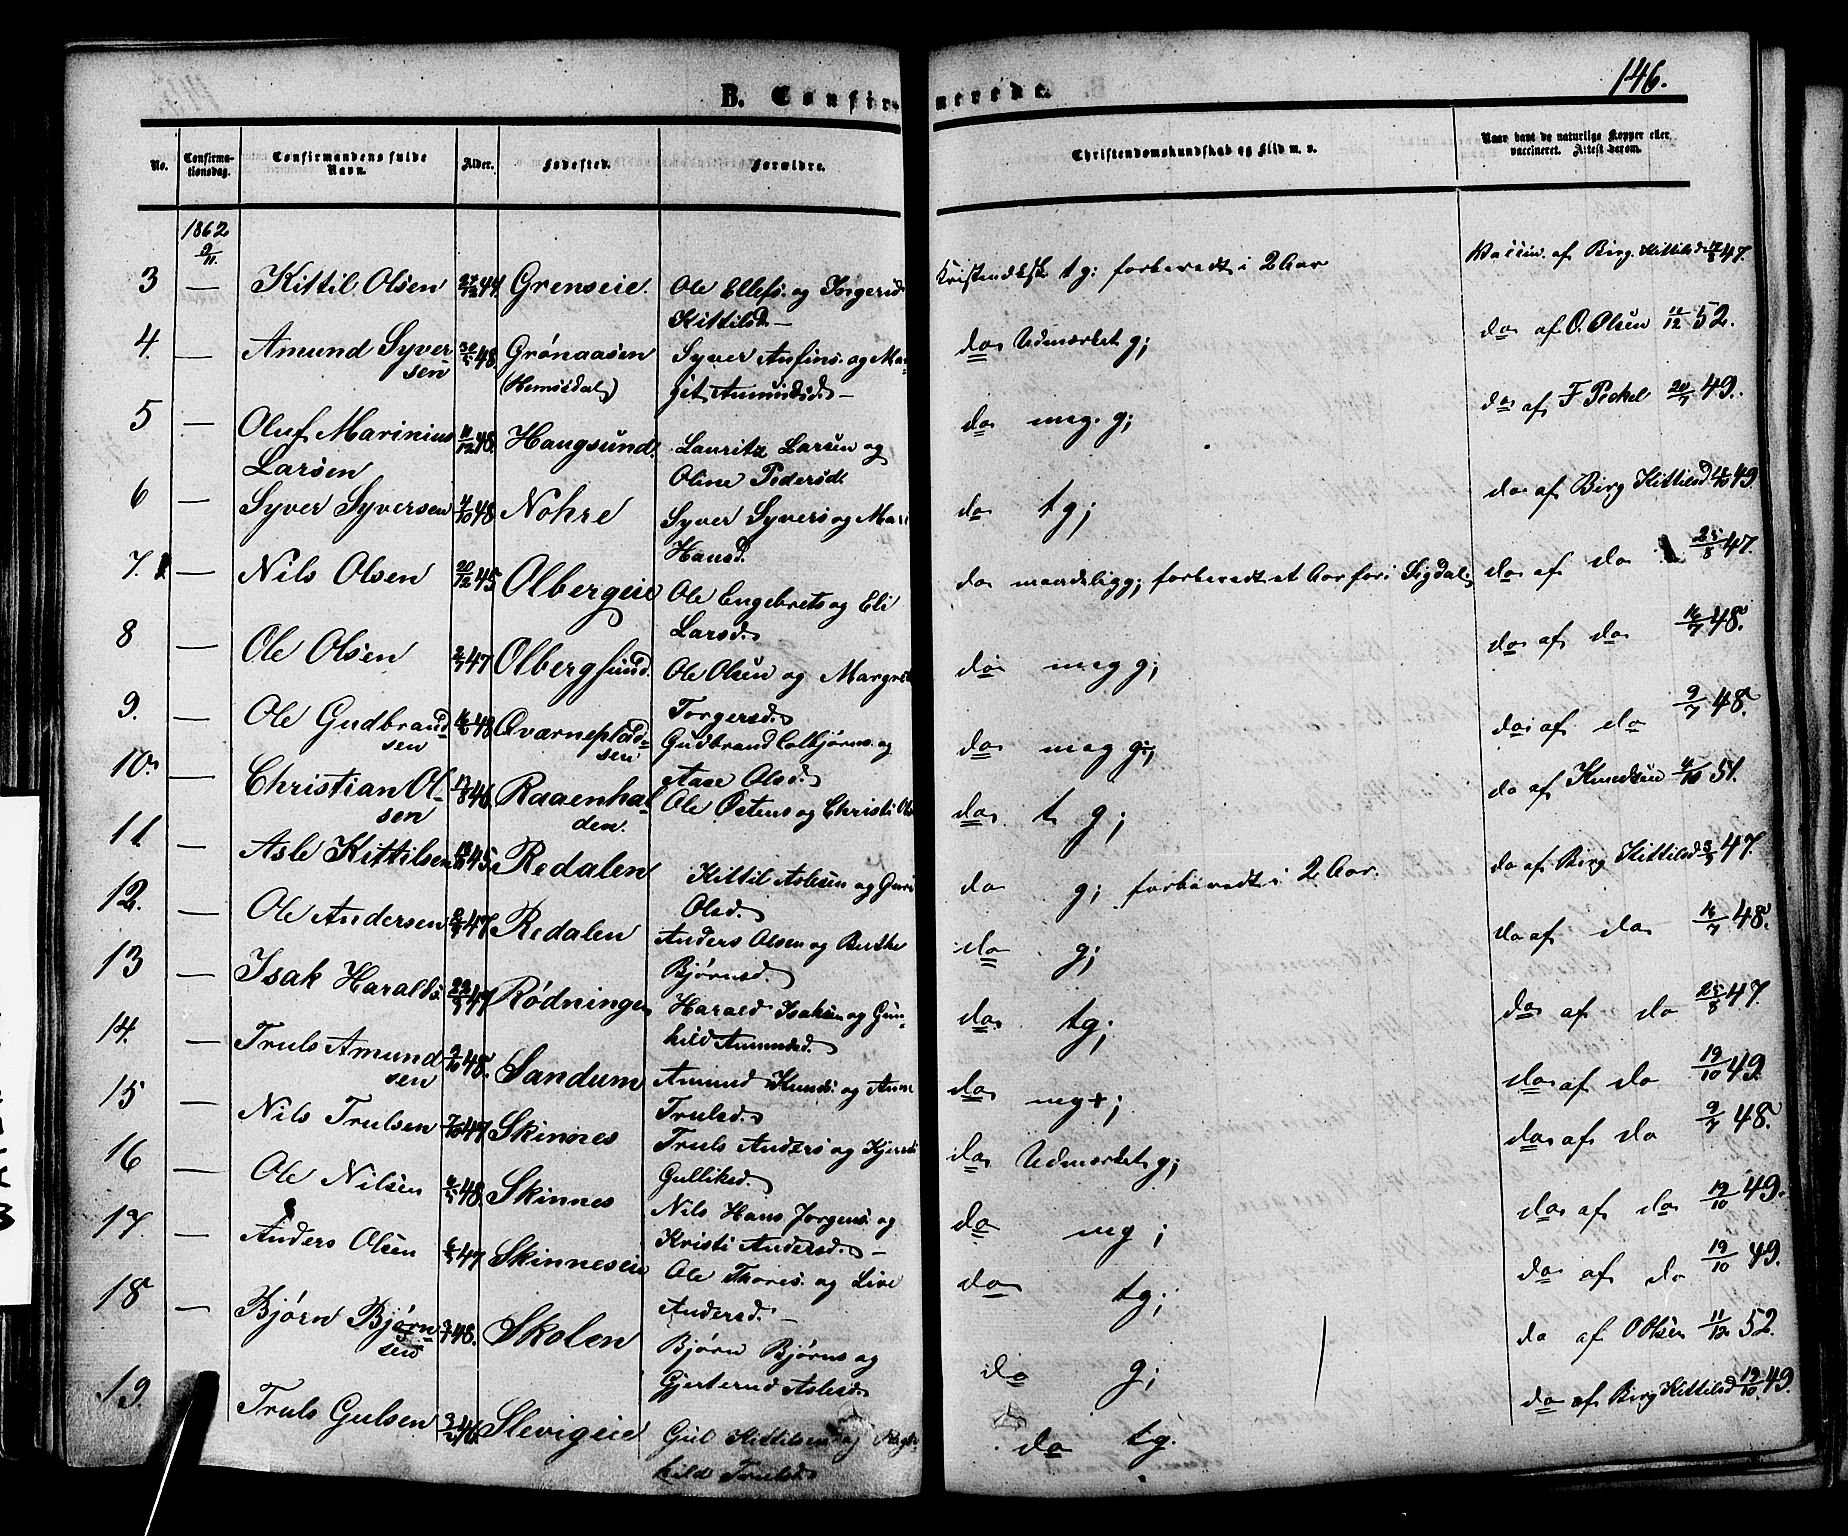 146.
B. Confirmerede.
No. Confirmationsdag. Confirmandens fulde Navn. Alder. Fødested. Forældre. Christendomskundskab og Flid m. v. Naar havt de naturlige Kopper eller vaccineret. Attest derom.
1862 9/11.
3 — Kittil Olsen 27/12 44. Grenseie. Ole Ellefs. og Ingerid Kittilsd. — Kristendksk tg; forberedt i 2 Aar Vaccin. af Birg Kittilsd 47.
4. — Amund Syversen 48. Grönaasen (Hemsedal) Syver Anfins. og Margit Amundsd. — do Udmærket g; do af O. Olsen 11/12 52.
5 — Oluf Marinius Larsen 11/12 48. Haugsund. Lauritz Larsen og Oline Pedersd. do meg. g; do af F Peckel 20/7 49.
6 — Syver Syversen 4/10 48. Nohre Syver Syvers og Mari Hansd. do tg; do af Birg Kittilsd 49.
7. — Nils Olsen 20/12 45 Olbergeie Ole Engebrets og Eli Larsd. do maadelig g; forberedt et Aar før i Sigdal. do af do 25/8 47.
8 — Ole Olsen 2/7 47 Olbergsund. Ole Olsen og Margret Torgersd. do meg g; do af do 16/7 48.
9. — Ole Gudbrandsen 48. Qværnepladsen Gudbrand Colbjørns. og Aase Olsd. do meg g; do af do 9/7 48.
10. — Christian Olsen 17/8 46. Raaenhalden. Ole Østens og Christi Ols do t g; do af Knudsen 51.
11. Asle Kittilsen 45. Redalen Kittil Aslesen og Guri Olsd. do g; forberedt i 2 Aar. do af Birg Kittilsd 47.
12. — Ole Andersen 47. Redalen Anders Olsen og Berthe Bjørnsd. do g; do af do 16/7 48.
13 — Isak Haralds. 47 Rødningen Harald Isaksen og Gunhild Amundsd. do tg; do af do 25/8 47.
14. — Truls Amundsen 9/10 48. Sandum Amund Knuds. og Anne Trulsd. do mg+; do af do 19/10 49.
15 — Nils Trulsen 7/10 47 Skinnes Truls Anders og Kjersti Gulliksd. do Udmærket g; do af do 9/7 48.
16 — Ole Nilsen 48. Skinnes Nils Hans Jorgens. og Kristi Andersd. — do mg; do af do 19/10 49.
17. — Anders Olsen 47 Skinneseie Ole Thores. og Live Andersd. — do tg; do af do 19/10 49.
18 — Bjørn Bjørnsen 48. Skolen Bjørn Bjørns og Gjertrud Aslesd. do g; do af O Olsen 11/12 52.
19. Truls Gulsen 46 Slevigeie Gul Kittilsen og Raghild Trulsd. do tg. do af Birg Kittilsd 19/10 49.